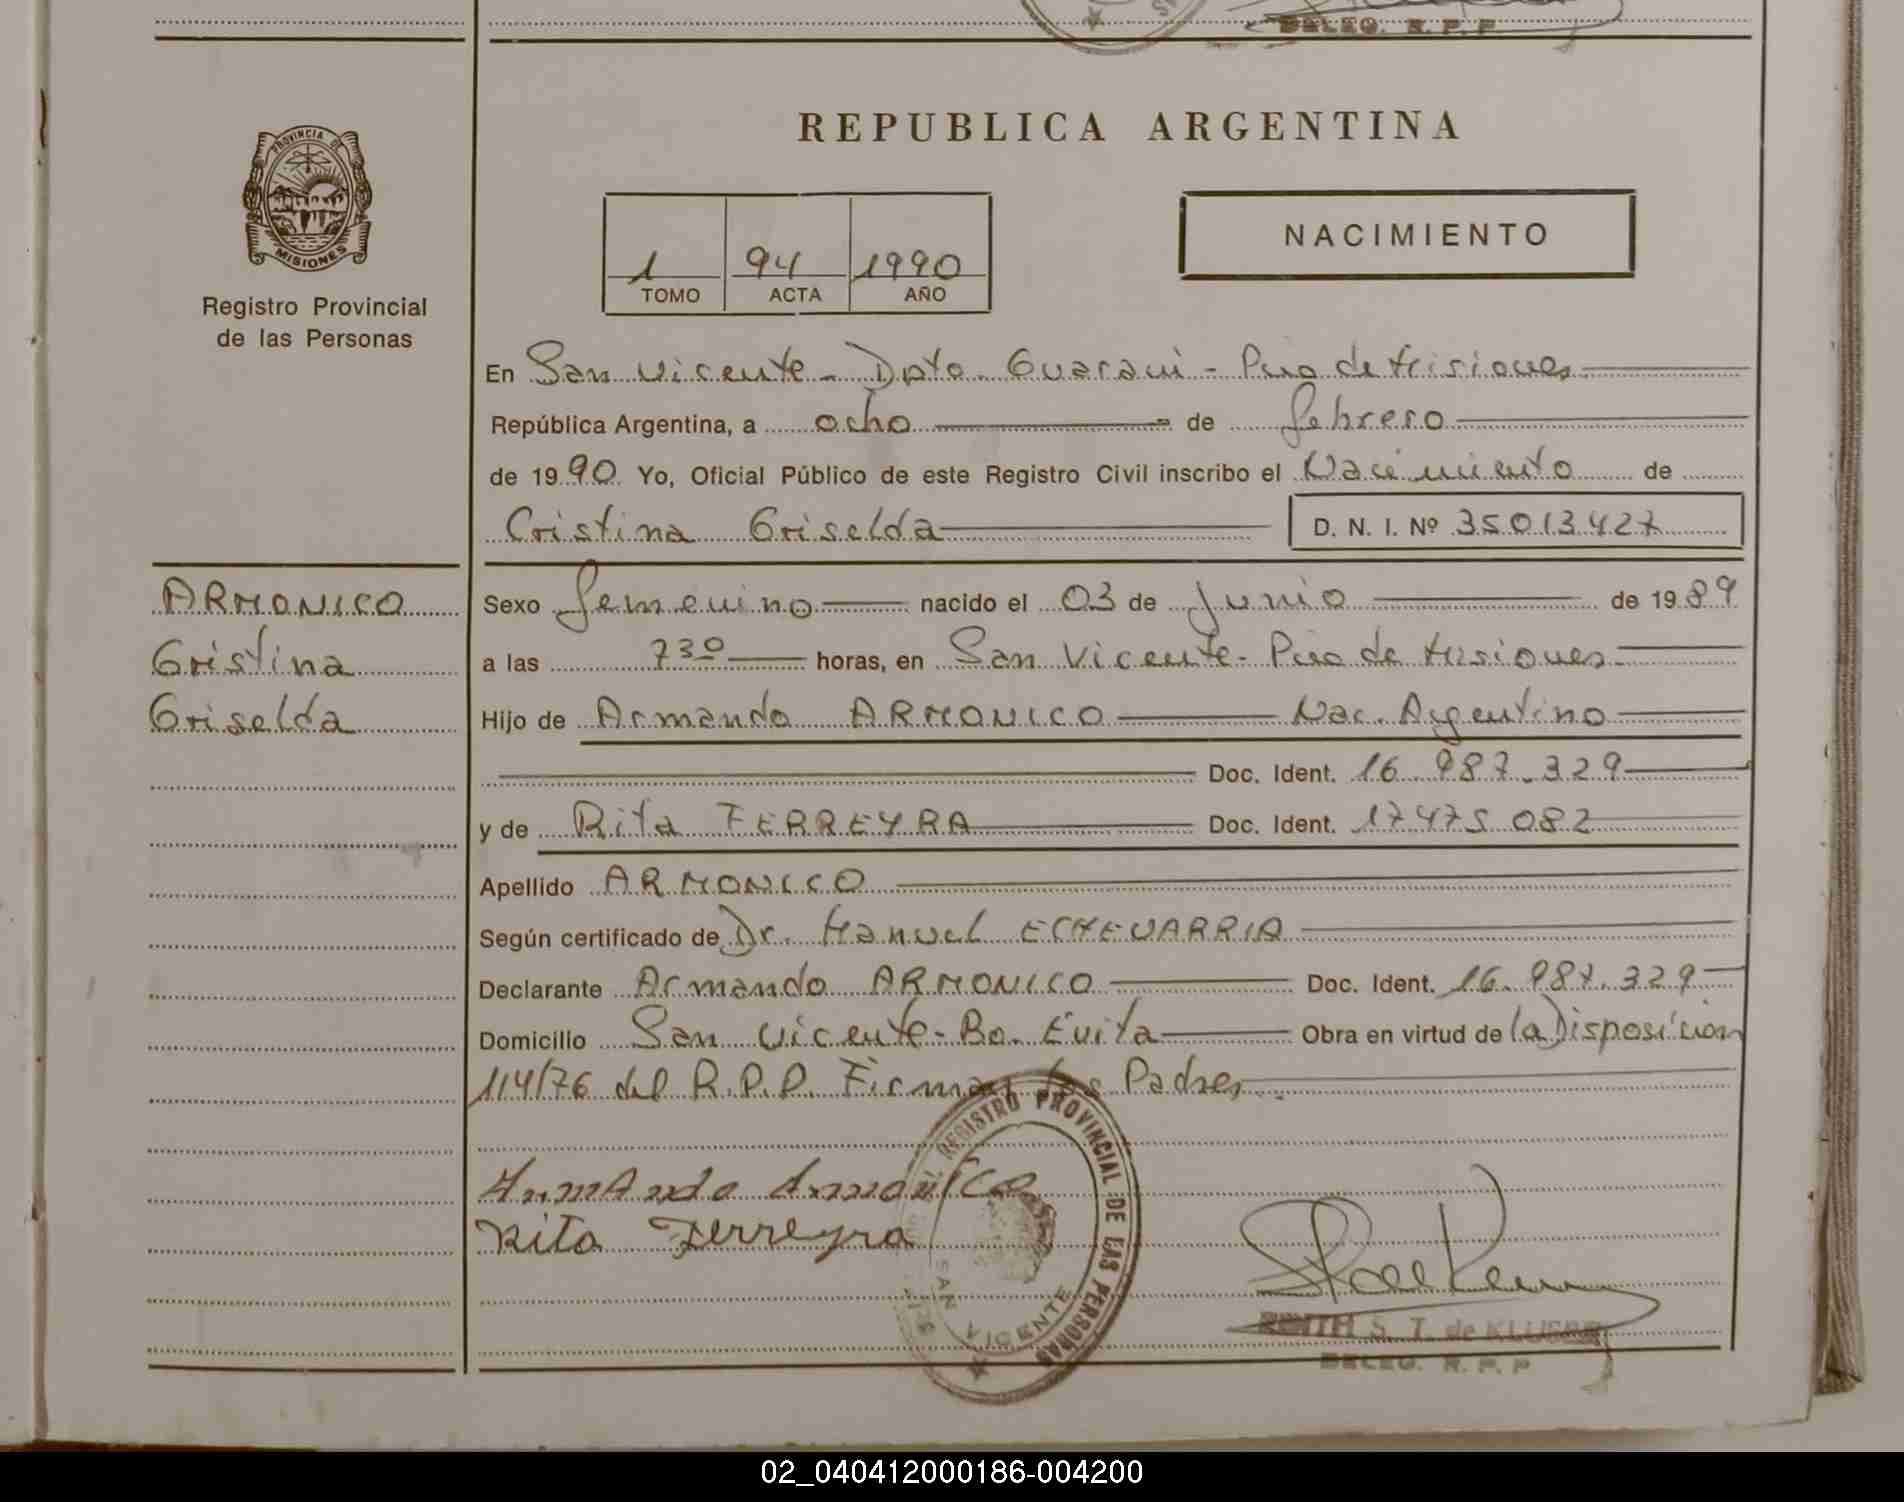 DELEG. R. P. P.
PROVINCIA DE
MISIONES
Registro Provincial
de las Personas
REPUBLICA ARGENTINA
1 94 1990
TOMO ACTA AÑO
NACIMIENTO
En San Vicente - Dpto. Guarani - Pcia de Misiones
República Argentina, a ocho de febrero
de 1990 Yo, Oficial Público de este Registro Civil inscribo el Nacimiento de
Cristina Griselda D. N. I. Nº 35013427
ARMONICO
Cristina
Griselda
Sexo femenino nacido el 03 de Junio de 1989
a las 730 horas, en San Vicente - Pcia de Misiones
Hijo de Armando ARMONICO Nac. Argentino
Doc. Ident. 16.987.329
y de Rita FERREYRA Doc. Ident. 17475082
Apellido ARMONICO
Según certificado de Dr. Manuel ECHEVARRIA
Declarante Armando ARMONICO Doc. Ident. 16.987.329
Domicilio San Vicente - Bo. Evita Obra en virtud de la Disposición
114/76 del R.P.P. Firman los Padres
Armando Armonico
Rita Ferreyra
REGISTRO PROVINCIAL DE LAS PERSONAS
SAN VICENTE
S. T. de KLUSER
DELEG. R. P. P
02_040412000186-004200